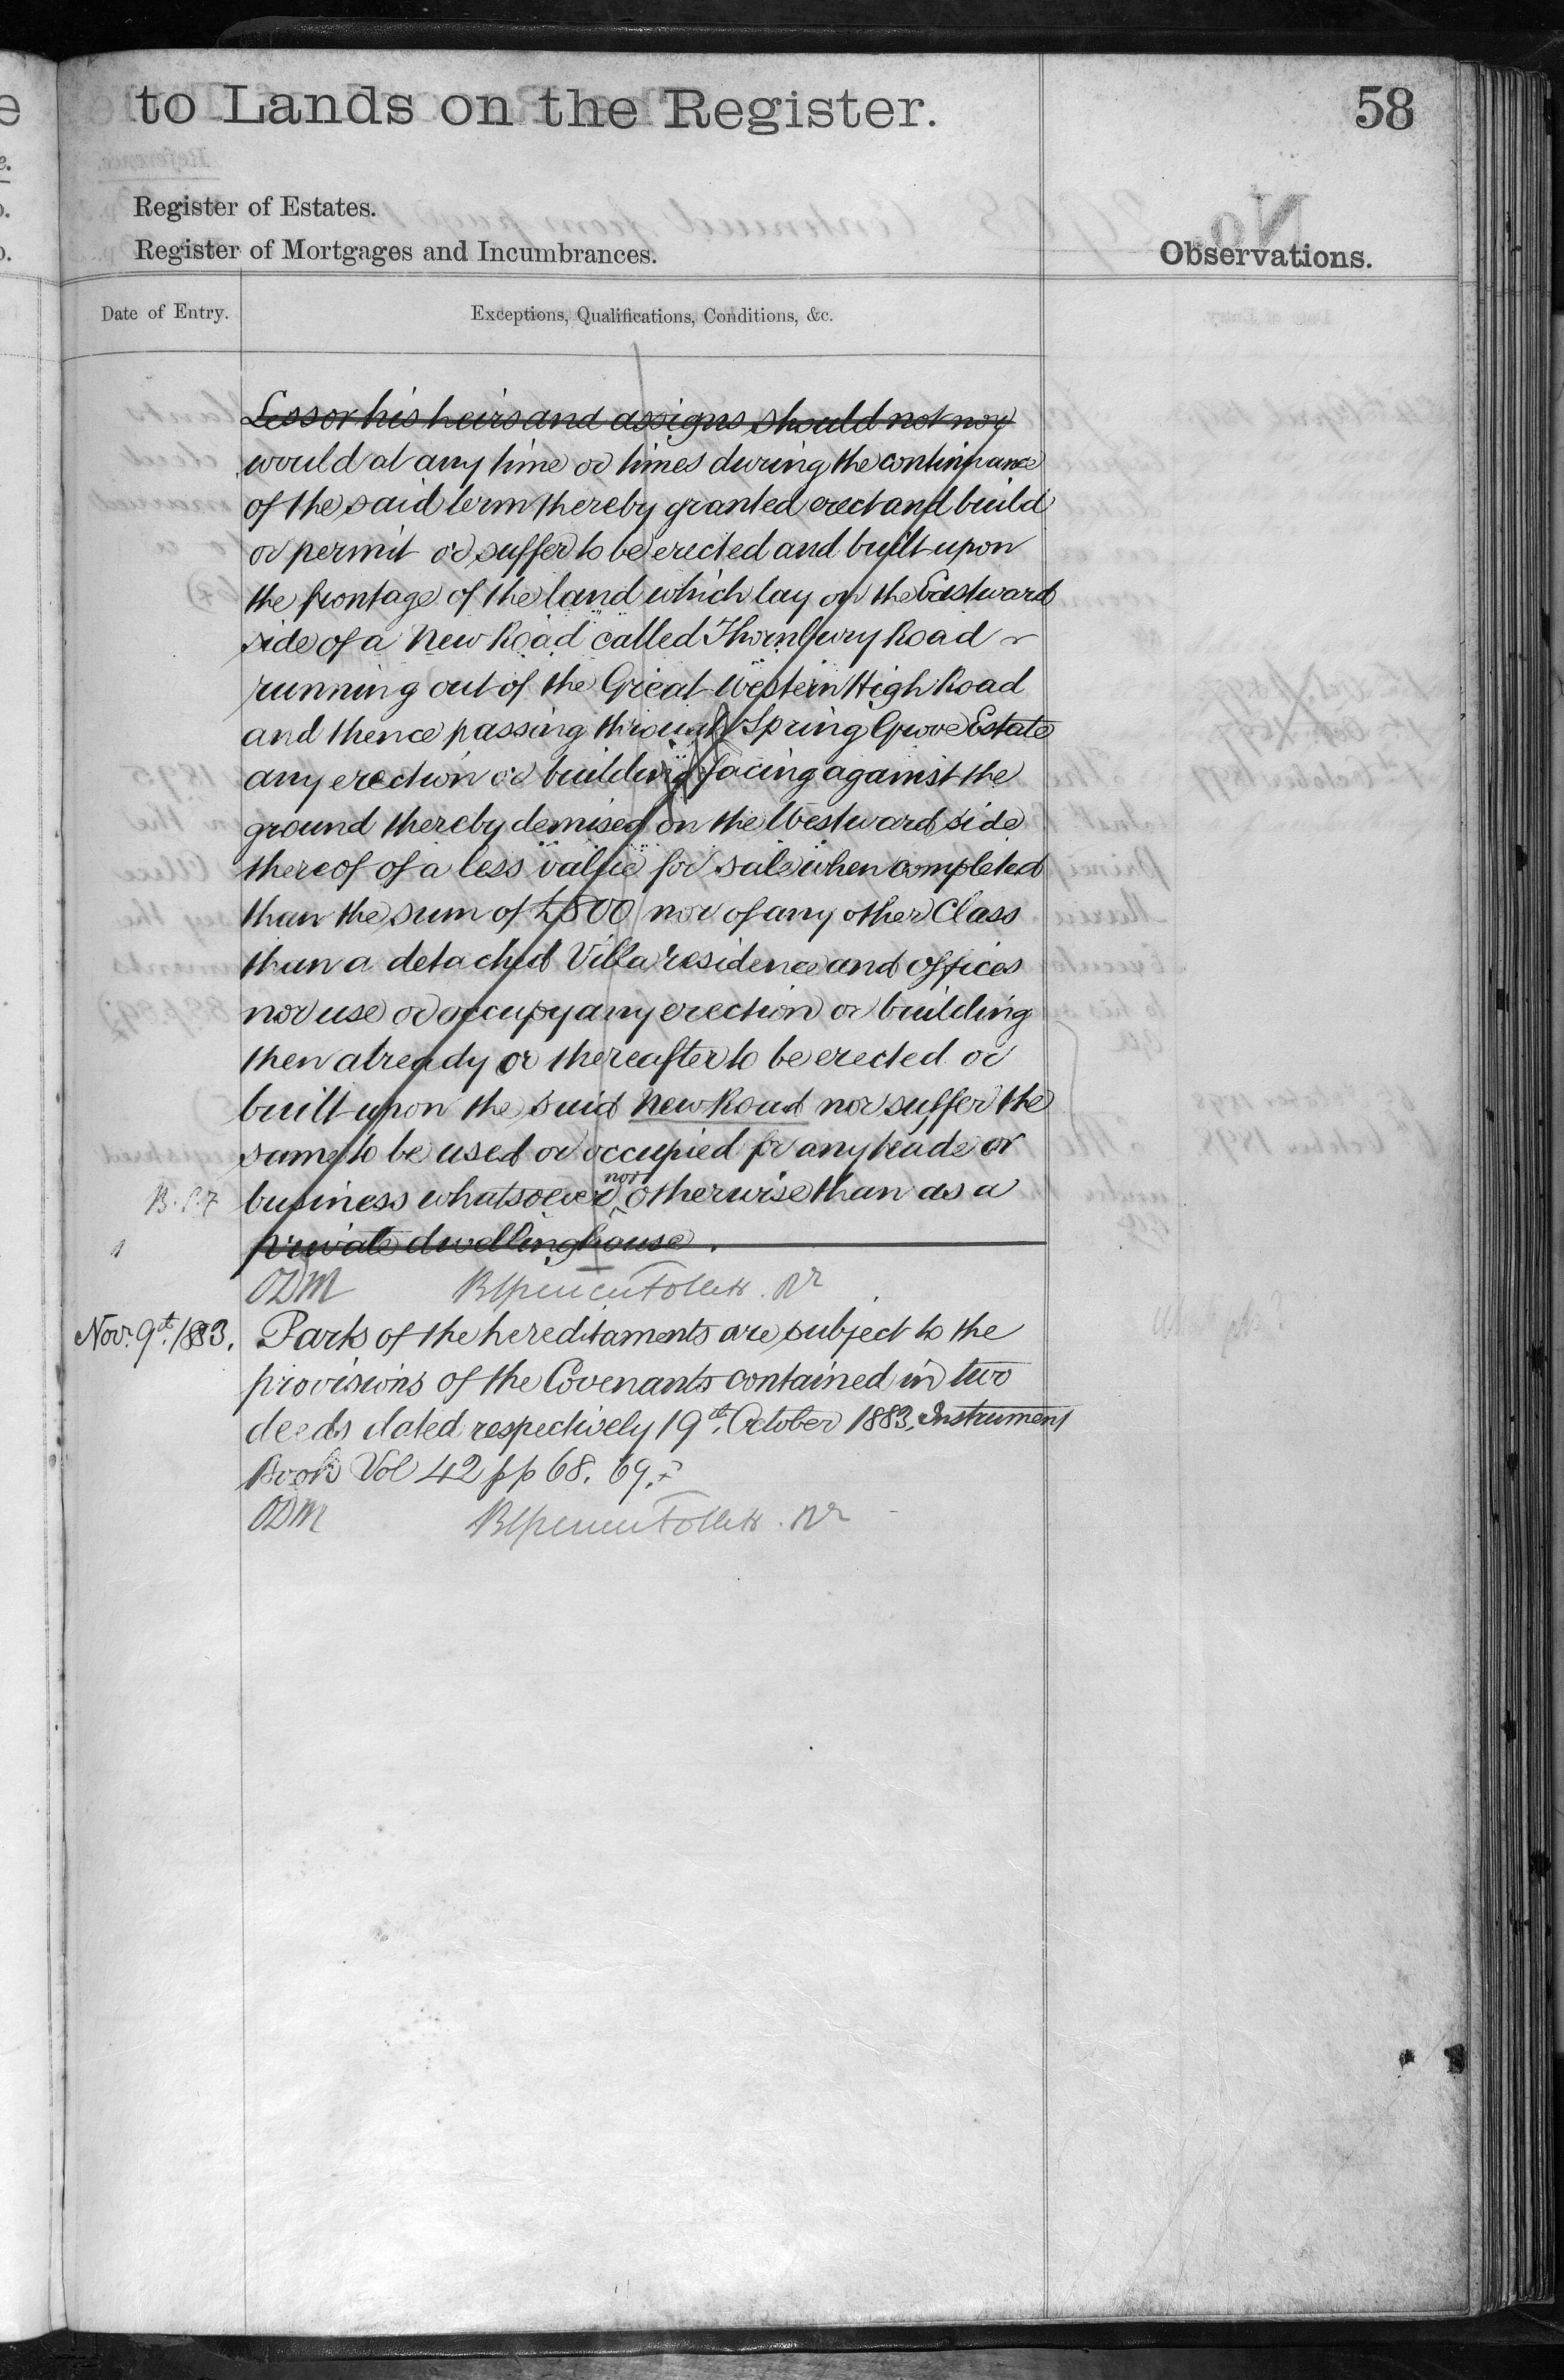 to Lands on the Register.
58
Register of Estates.
Register of Mortgages and Incumbrances.
Observations.
Date of Entry.
Exceptions, Qualifications, Conditions, &c.
Lessor his heirs and assigns should not nor
would at any time or times during the continuance
of the said term thereby granted erect and build
or permit or suffer to be erected and built upon
the frontage of the land which lay on the Eastward
side of a New Road called Thornbury Road
running out of the Great Western High Road
and thence passing through Spring Grove Estate
any erection or building facing against the
ground thereby demised on the Westward side
thereof of a less value for sale when completed
than the sum of £800 nor of any other Class
than a detached Villa residence and offices
nor use or occupy any erection or building
then already or thereafter to be erected or
built upon the said New Road nor suffer the
same to be used or occupied for any trade or
business whatsoever nor otherwise than as a
B.S.F
private dwellinghouse.
1
ODM
Nov. 9th. 1883.
Parts of the hereditaments are subject to the
provisions of the Covenants contained in two
deeds dated respectively 19th. October 1883. Instrument
Book Vol 42 pp 68. 69.
ODM